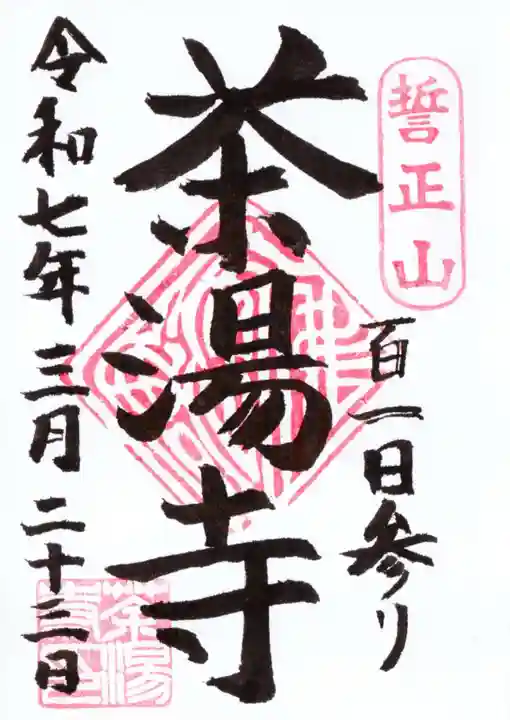 誓正山
百一日参り
茶湯寺
令和七年三月二十三日
茶湯
寺印